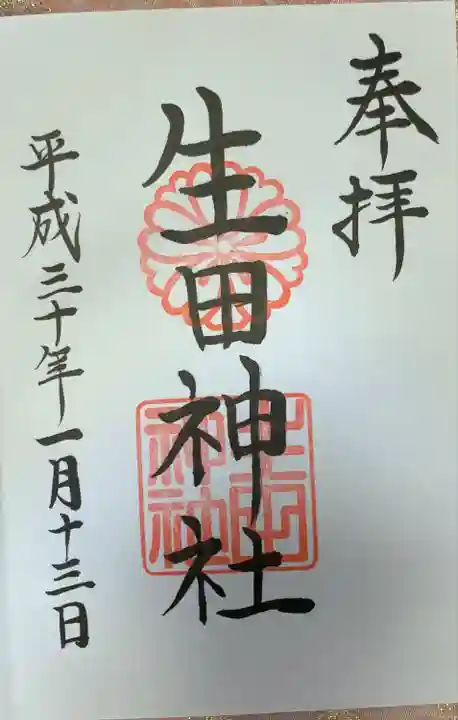 奉拝
生田神社
生田神社
平成三十年一月十三日